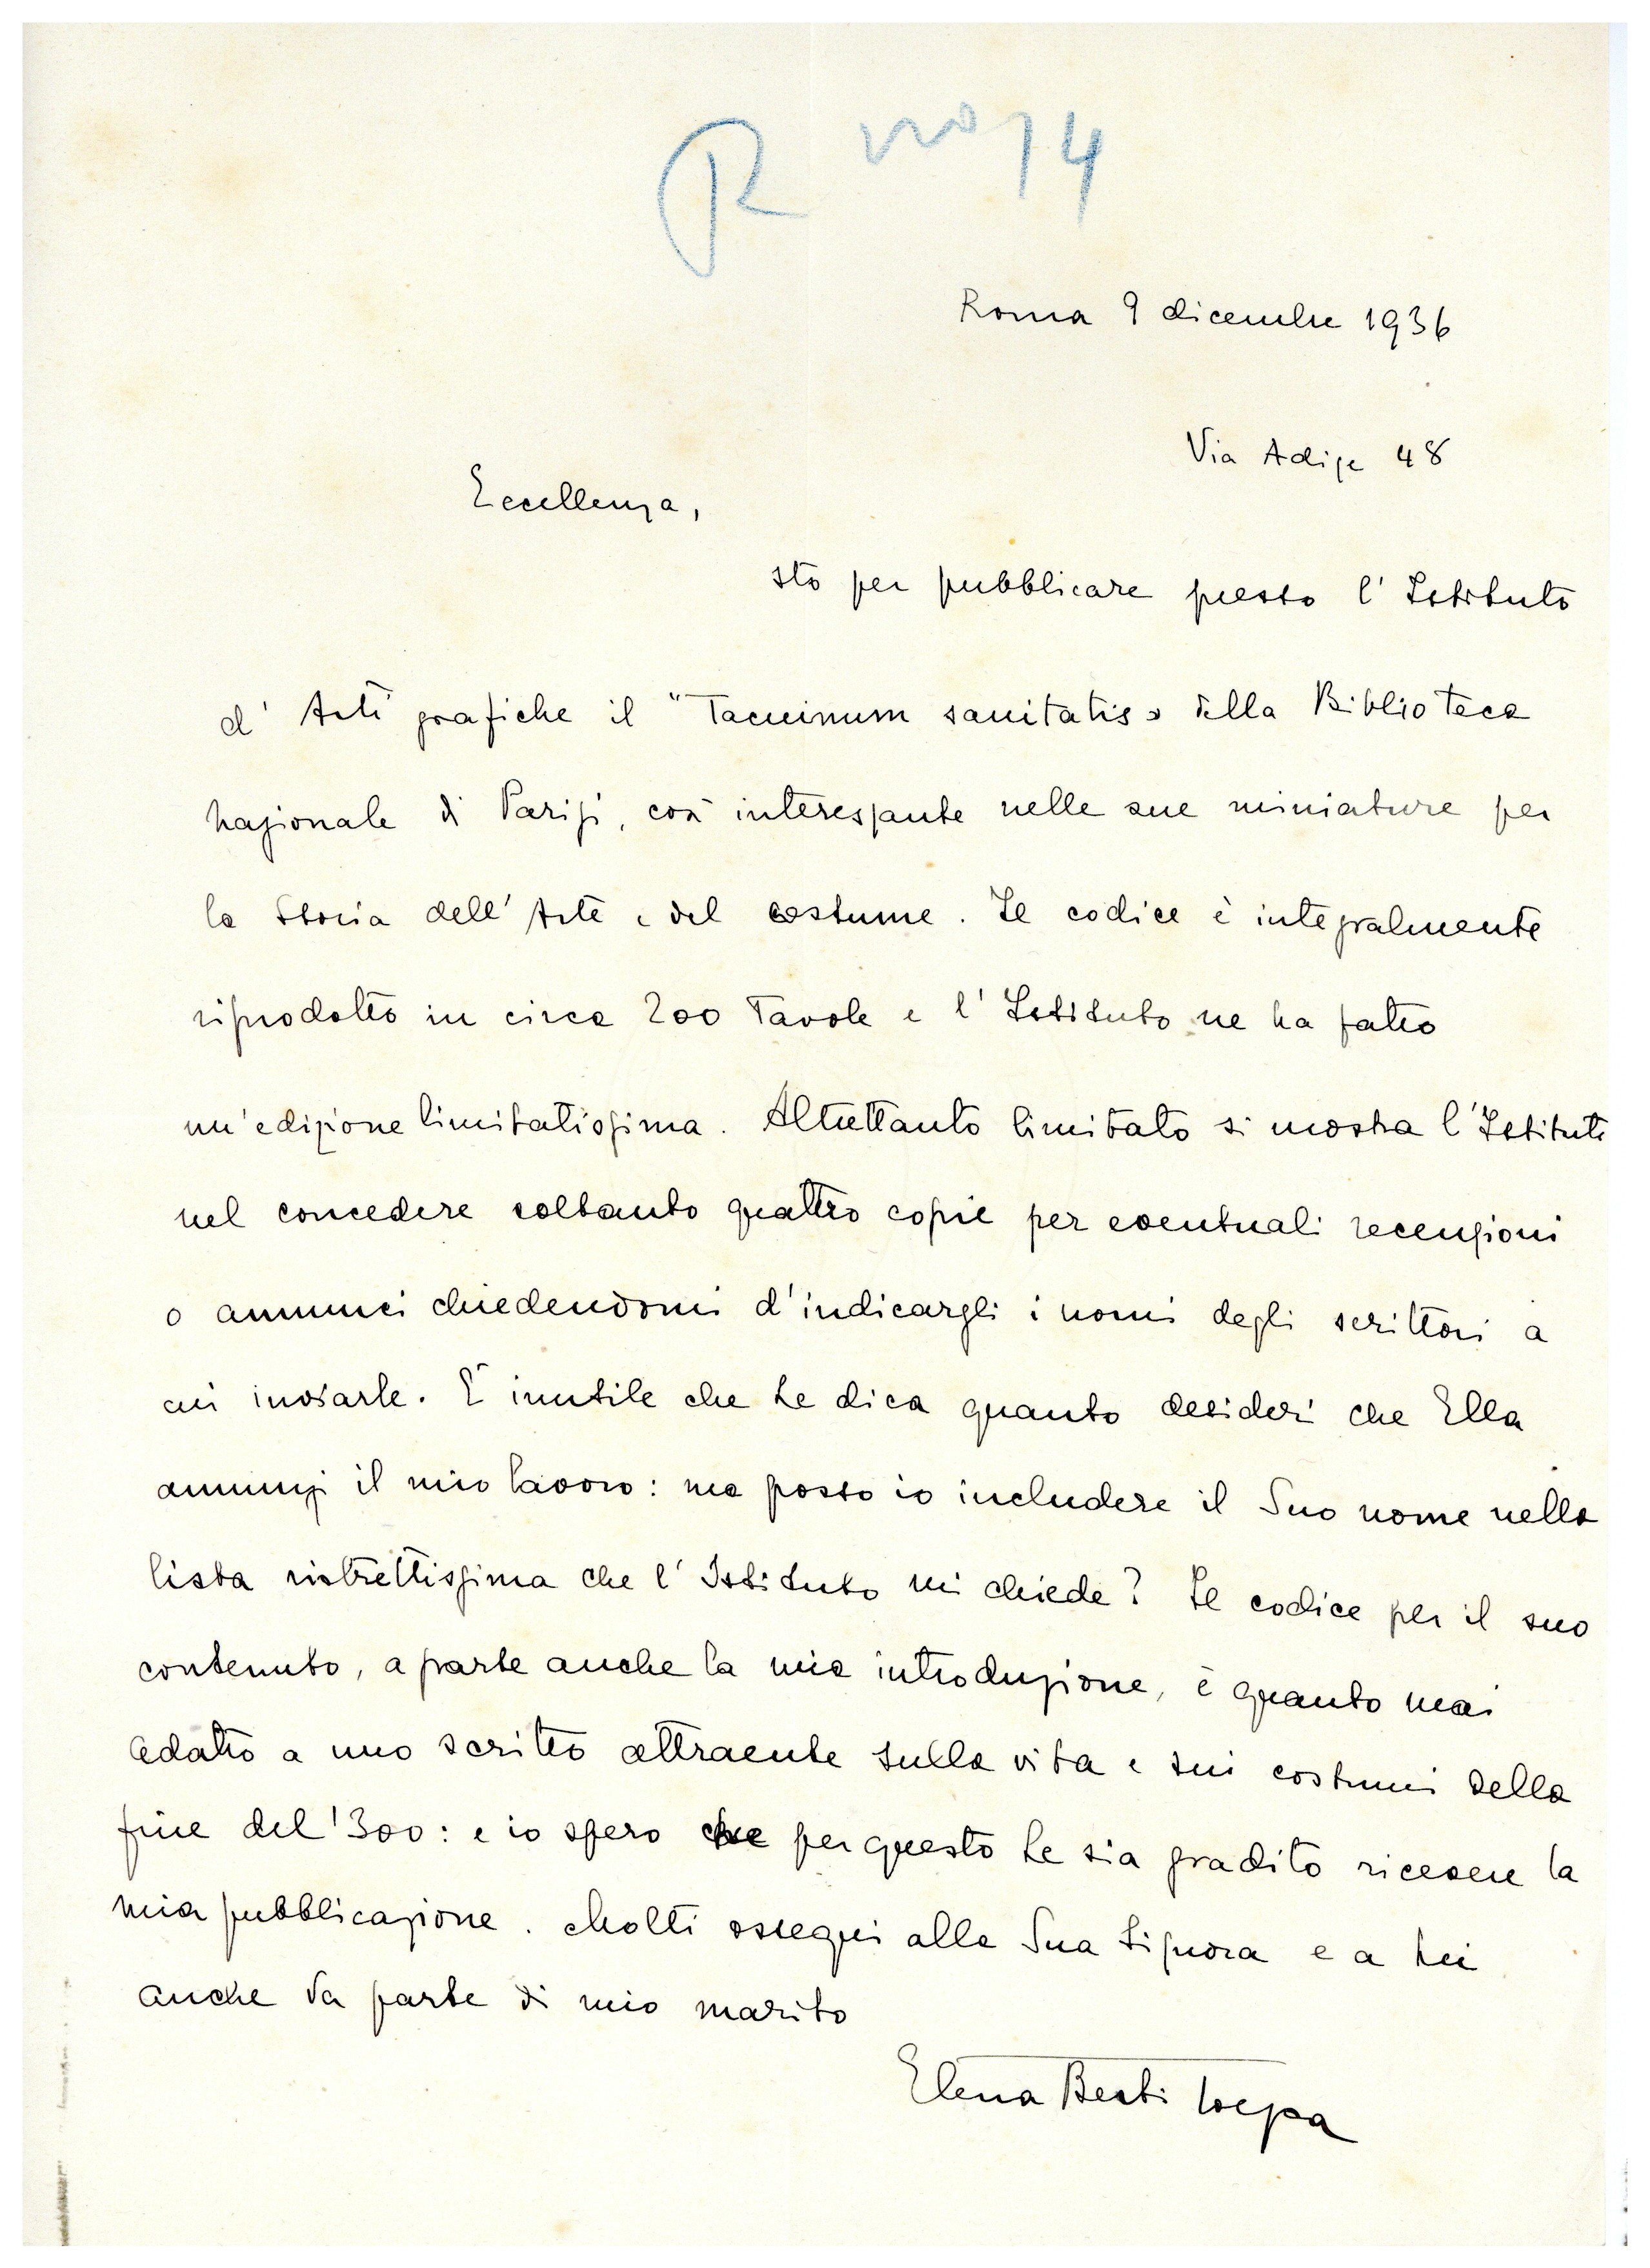 R no 14
Roma 9 dicembre 1936
Via Adige 48
Eccellenza,
sto per pubblicare presso l'Istituto
d'Arti grafiche il "Tacuinum sanitatis" della Biblioteca
nazionale di Parigi, così interessante nelle sue miniature per
la Storia dell'Arte e del costume. Il codice è integralmente
riprodotto in circa 200 Tavole e l'Istituto ne ha fatto
un'edizione limitatissima. Altrettanto limitato si mostra l'Istituto
nel concedere soltanto quattro copie per eventuali recensioni
o annunci chiedendomi d'indicargli i nomi degli scrittori a
cui inviarle. È inutile che Le dica quanto desideri che Ella
annunzi il mio lavoro: ma posso io includere il Suo nome nella
lista ristrettissima che l'Istituto mi chiede? Il codice per il suo
contenuto, a parte anche la mia introduzione, è quanto mai
adatto a uno scritto attraente sulla vita e sui costumi della
fine del '300: e io spero che per questo Le sia gradito ricevere la
mia pubblicazione. Molti ossequi alla Sua Signora e a Lei
anche da parte di mio marito
Elena Berti Toesca